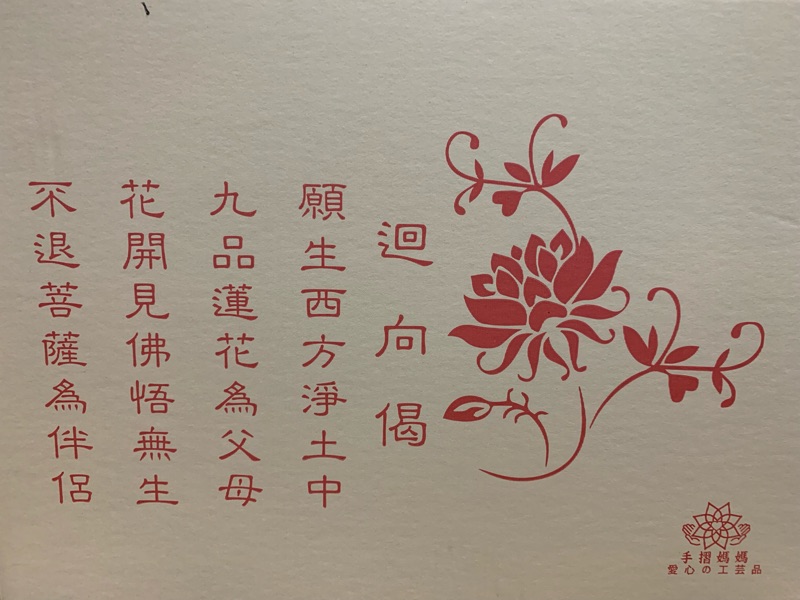 迴向偈
願生西方淨土中
九品蓮花為父母
花開見佛悟無生
不退菩薩為伴侶
手摺媽媽
愛心の工芸品